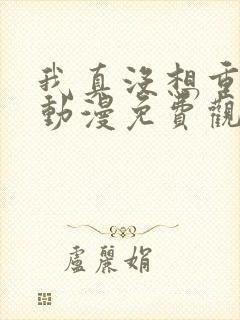 我真沒想重
動漫免費觀
盧麗娟